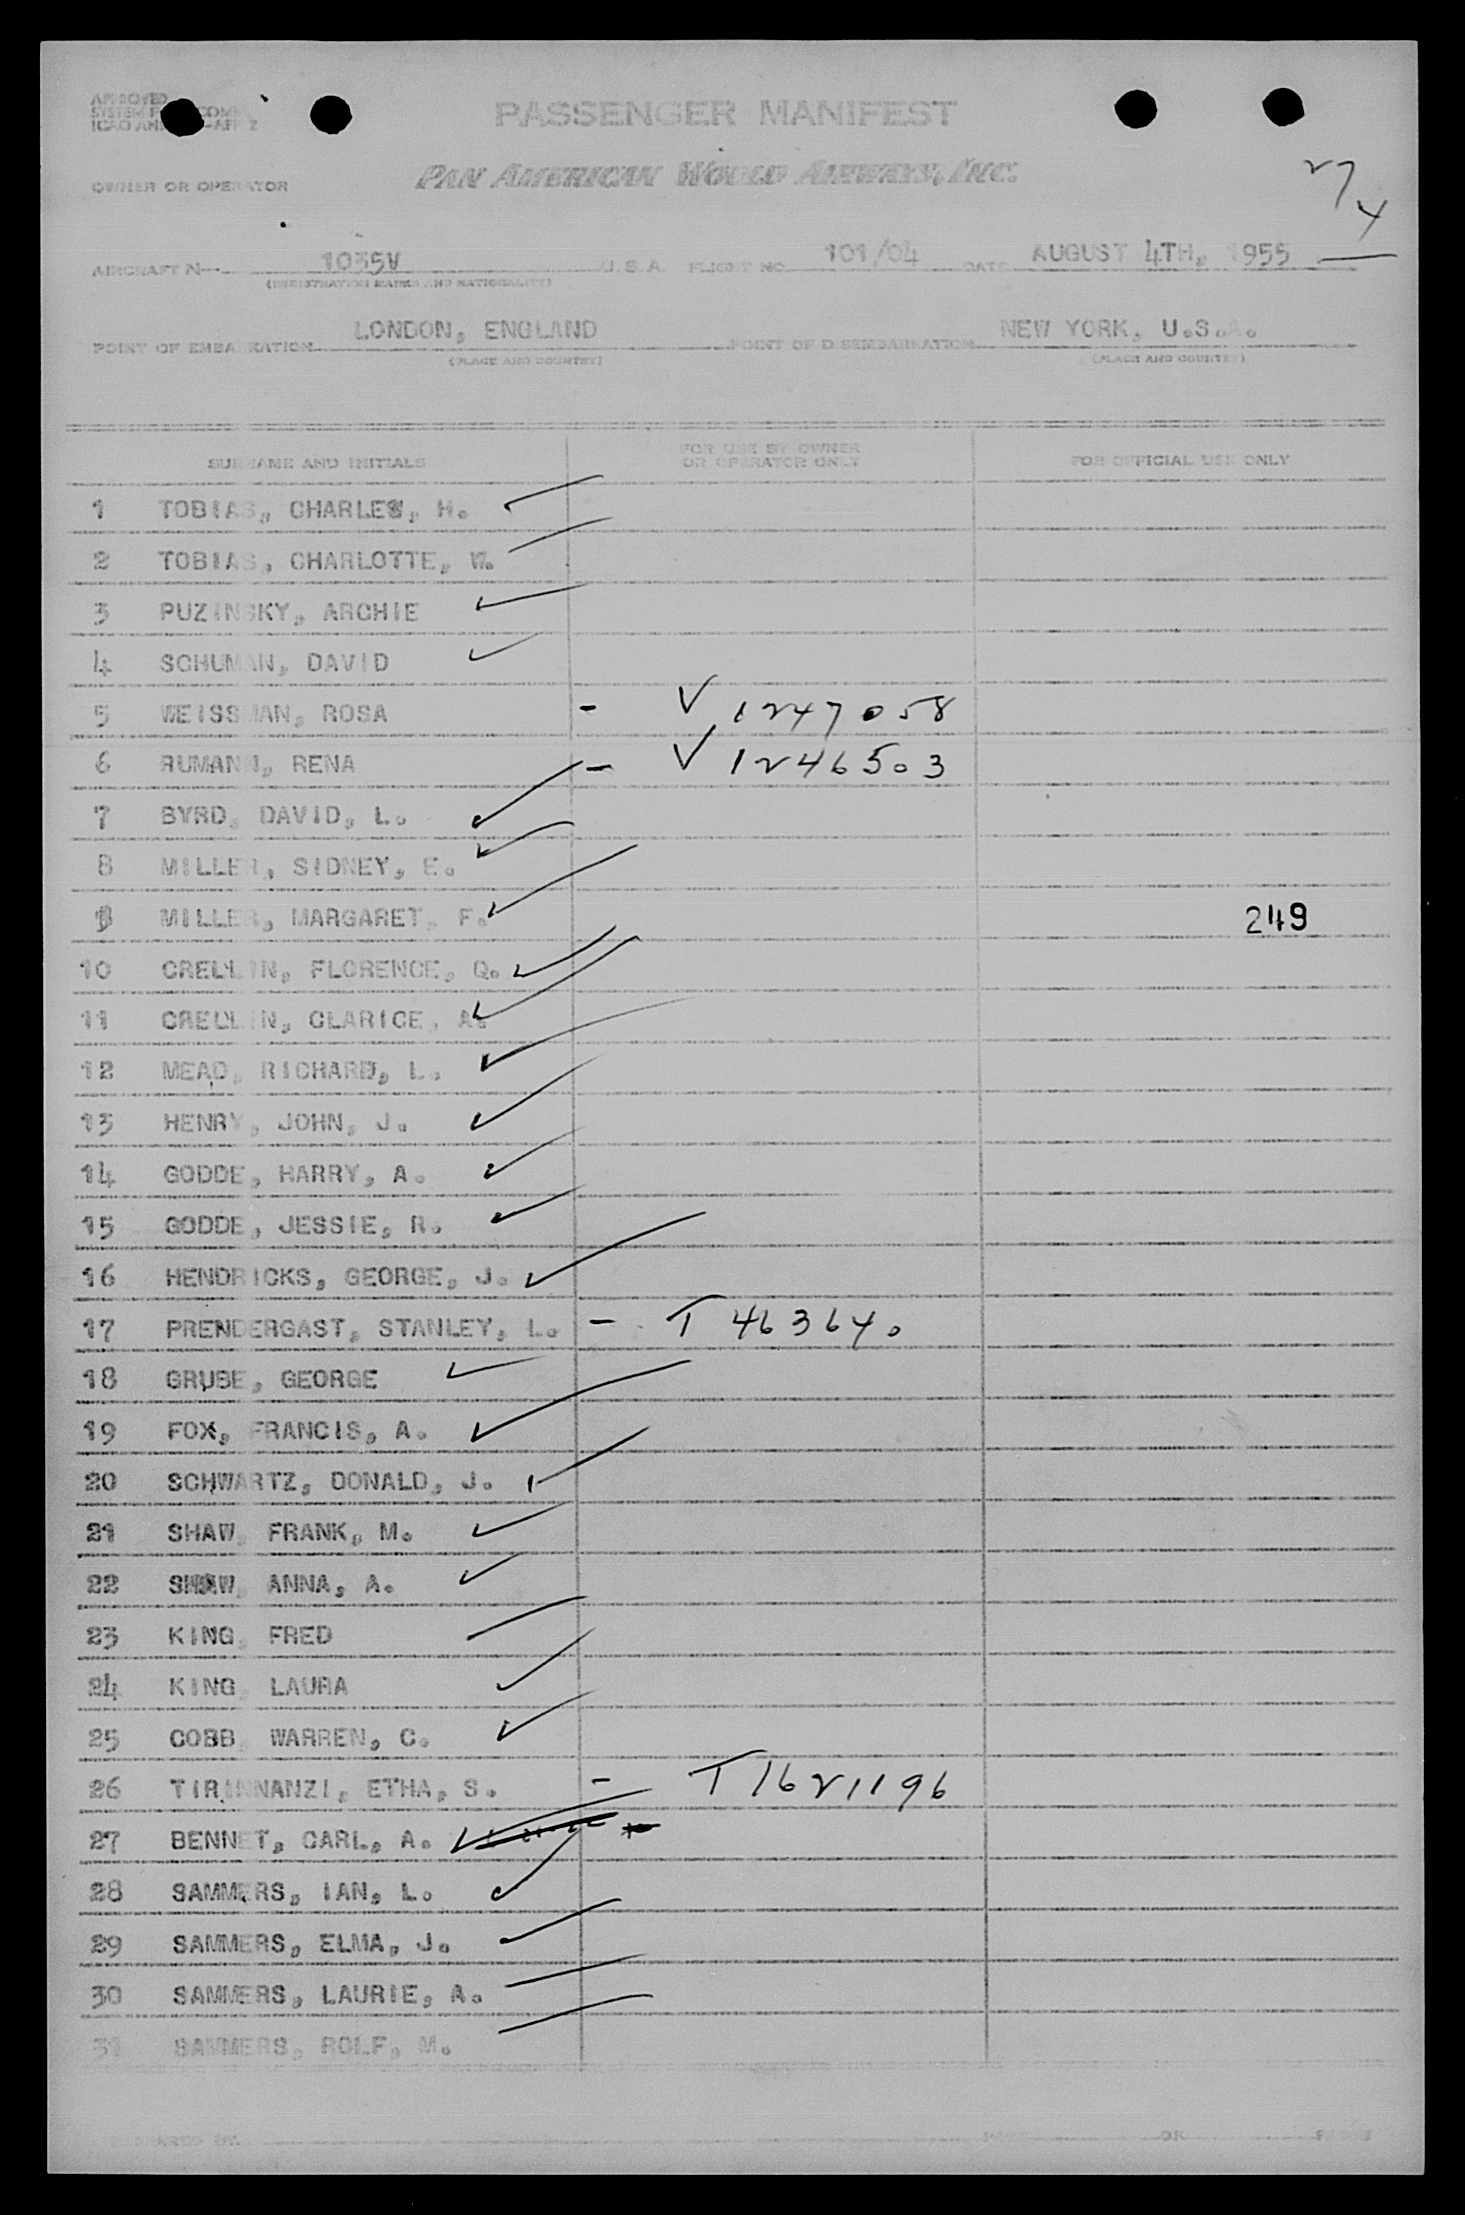 APPROVED
PASSENGER MANIFEST
PAN AMERICAN WORLD AIRWAYS, INC.
OWNER OR OPERATOR
AIRCRAFT N- 1035V U.S.A. FLIGHT NO. 101/04 DATE AUGUST 4TH, 1955
(REGISTRATION MARKS AND NATIONALITY)
POINT OF EMBARKATION LONDON, ENGLAND POINT OF DISEMBARKATION NEW YORK, U.S.A.
(PLACE AND COUNTRY) (PLACE AND COUNTRY)
SURNAME AND INITIALS FOR USE BY OWNER OR OPERATOR ONLY FOR OFFICIAL USE ONLY
1 TOBIAS, CHARLES, H.
2 TOBIAS, CHARLOTTE, W.
3 PUZINSKY, ARCHIE
4 SCHUMAN, DAVID
5 WEISSMAN, ROSA - V 1247058
6 RUMANN, RENA - V 1246503
7 BYRD, DAVID, L.
8 MILLER, SIDNEY, E.
9 MILLER, MARGARET, F. 249
10 CRELLIN, FLORENCE, Q.
11 CRELLIN, CLARICE, A.
12 MEAD, RICHARD, L.
13 HENRY, JOHN, J.
14 GODDE, HARRY, A.
15 GODDE, JESSIE, R.
16 HENDRICKS, GEORGE, J.
17 PRENDERGAST, STANLEY, L. - T 463640
18 GRUBE, GEORGE
19 FOX, FRANCIS, A.
20 SCHWARTZ, DONALD, J.
21 SHAW, FRANK, M.
22 SHAW, ANNA, A.
23 KING, FRED
24 KING, LAURA
25 COBB, WARREN, C.
26 ETHA, S. - T 1621196
27 BENNET, CARL, A.
28 SAMMERS, IAN, L.
29 SAMMERS, ELMA, J.
30 SAMMERS, LAURIE, A.
31 SAMMERS, ROLF, M.